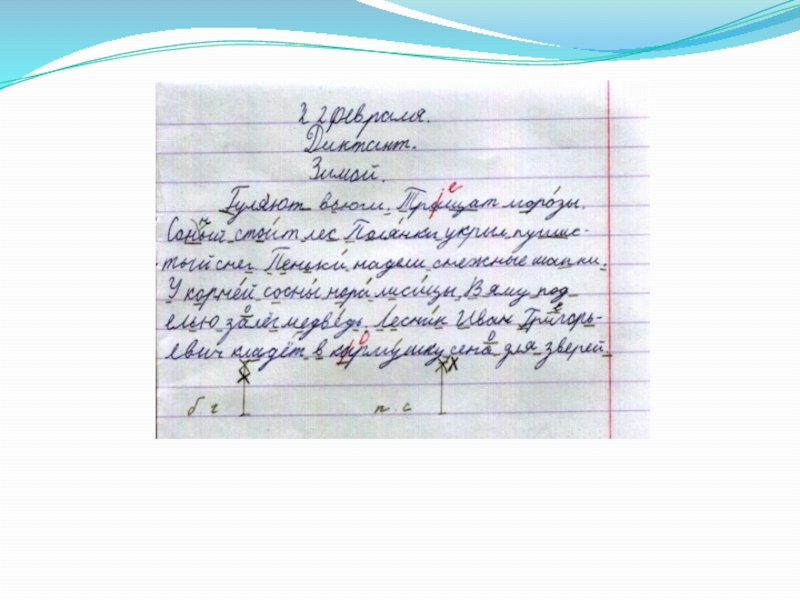 22 февраля.
Диктант.
Зимой.
Гуляют вьюги. Трищат морозы.
Соный стоит лес. Полянки укрыл пушис-
тый снег. Пеньки надели снежные шапки.
У корней сосны нора лисицы. В яму под
елью залёг медведь. Лесник Иван Григорь-
евич кладёт в кармушку сена для зверей.
б г п. с